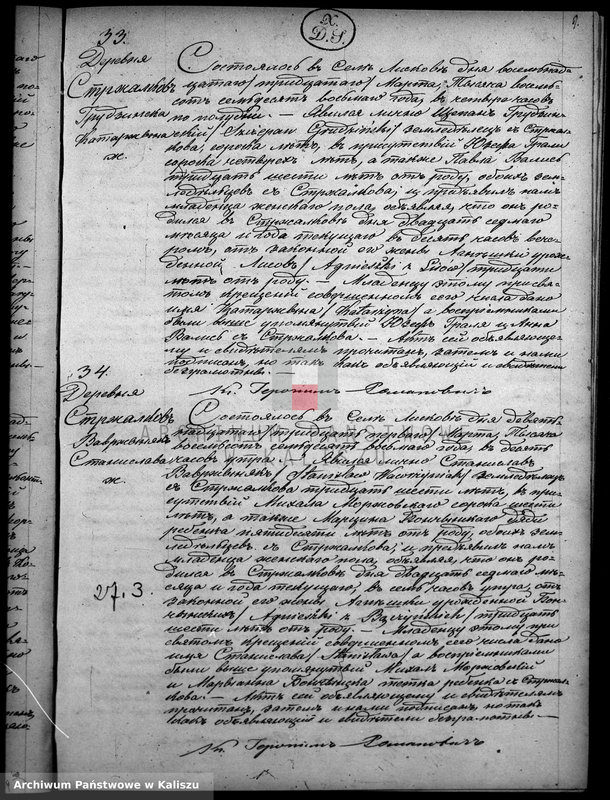 X.
D.S.
9.
33.
Деревня
Стржалковъ
Грудзинска
Катаржина
ж.
Состоялось въ Селѣ Лисковъ дня восемнад-
цатаго /тридцатаго/ Марта, тысяча восемь-
сотъ семьдесятъ восьмаго года, въ четыре часовъ
по полудни. — Явился лично Щепанъ Грудзин-
скій / Szczepan Grudziński / земледѣлецъ съ Стржал-
кова, сорока лѣтъ, въ присутствіи Юзефа Граля
сорока четырехъ лѣтъ, а также Павла Валиса
тридцать шести лѣтъ отъ роду, обоихъ зем-
ледѣльцевъ съ Стржалкова; и предъявилъ намъ
младенца женскаго пола, объявляя, что онъ ро-
дился въ Стржалковѣ дня двадцать седмаго
мѣсяца и года текущаго въ десять часовъ вече-
ромъ, отъ законной его жены Агнешки урож-
денной Лисовъ / Agnieszki z Lisów / тридцати
лѣтъ отъ роду. — Младенцу этому при свя-
томъ крещеніи совершенномъ его числа дано
имя Катаржина / Katarzyna / а воспріемниками
были выше упомянутый Юзефъ Граля и Анна
Валисъ съ Стржалкова. — Актъ сей объявляюще-
му и свидѣтелямъ прочитанъ, затемъ и нами
подписанъ, но такъ какъ объявляющій и свидѣтели
безграмотны. —
Кс. Геронимъ Романовичъ
34.
Деревня
Стржалковъ
Вавржинякъ
Станислава
ж.
Состоялось въ Селѣ Лисковъ дня девят-
надцатаго /тридцать перваго/ Марта, тысяча
восемьсотъ семьдесятъ восьмаго года, въ десять
часовъ утра. — Явился лично Станиславъ
Вавржинякъ, / Stanisław Wawrzyniak / земледѣлецъ
съ Стржалкова тридцать шести лѣтъ, въ при-
сутствіи Михала Моржовскаго сорока шести
лѣтъ, а также Марцина дяди
ребенка пятидесяти лѣтъ отъ роду, обоихъ зем-
ледѣльцевъ съ Стржалкова; и предъявилъ намъ
младенца женскаго пола, объявляя, что онъ ро-
дился въ Стржалковѣ дня двадцать седмаго мѣ-
сяца и года текущаго, въ семь часовъ утра, отъ
законной его жены Агнешки урожденной
/ Agnieszki z / тридцать
шести лѣтъ отъ роду. — Младенцу этому при
святомъ крещеніи совершенномъ его числа дано
имя Станислава / Stanisława / а воспріемниками
были выше упомянутый Михалъ Моржовскій
и Марыанна тетка ребенка съ Стржал-
кова. — Актъ сей объявляющему и свидѣтелямъ
прочитанъ, затемъ и нами подписанъ, но такъ
какъ объявляющій и свидѣтели безграмотны. —
27.3.
Кс. Геронимъ Романовичъ
ARCHIWUM PAŃSTWOWE
W KALISZU
Archiwum Państwowe w Kaliszu